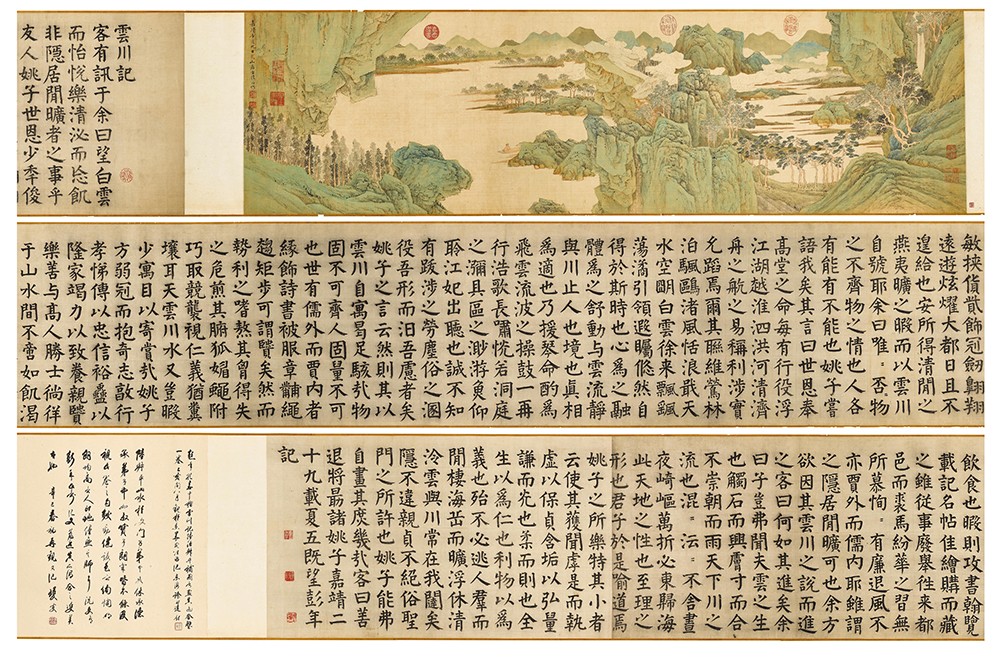 雲川記
客有訊于余曰望白雲
而怡悦樂清泌而忘飢
非隱居閒曠者之事乎
友人姚子世恩少秊俊
敏挾貨散飾冠劍翱翔
遠遊炫燿大都日且不
遑給也安所得清閒之
燕夷曠之暇而以雲川
自號耶余曰唯:否:物
之不齊物之情也人各
有能有不能也姚子嘗
語我矣其言曰世恩奉
髙堂之命每有行役浮
江湖越淮泗洪河清濟
舟之航之易稱利涉實
允蹈焉爾其聮維鶯林
泊颿鷗渚風恬浪戢天
水空明白雲徐来飄飄
蕩潏引領遐矚倐然自
得於斯時也心爲之融
體爲之舒動与雲流靜
與川止人也境也真相
為適也乃援琴命酌爲
飛雲流波之操鼓一再
行浩歌長嘯恍若洞庭
之瀰具區之渺游臾仰
聆江妃出聽也誠不知
有跋涉之勞塵俗之溷
役吾形而汨吾慮者矣
姚子之言云然則其以
雲川自寓曷足駭㢤物
固不可齊人固量不可
也世有儒外而賈内者
緣飾詩書被服章黼繩
趨矩步可謂贒矣然而
勢利之嗜熬其胷得失
之危煎其腑狐媚蝇附
巧取競襲視仁義猶糞
壤耳天雲川水又豈暇
少寓目以寄賞㢤姚子
方弱冠而抱奇志敦行
孝悌傳以忠信裕蠱以
隆家竭力以致養親贒
樂善与髙人勝士徜徉
于山水間不啻如飢渴
飲食也暇則攻書翰覽
載記名帖佳繪購而藏
之雖從事廢舉徃来都
邑而裘馬紛華之習無
所慕恂:有廉退風不
亦賈外而儒内耶雖謂
之隱居閒曠可也余方
欲因其雲川之說而進
之客曰何如其進矣余
曰子豈弗聞夫雲之生
也觸石而興膚寸而合
不崇朝而雨天下川之
流也混:沄:不舎晝
夜﨑嶇萬折必東歸海
此天地之性也至理之
形也君子於是喻道焉
姚子之所樂特其小者
云使其獲聞虖是而執
虛以保貞含垢以弘量
謙而光也柔而則也全
生以爲仁也利物以為
義也殆不必逃人羣而
閒棲海岳而曠浮休清
泠雲與川常在我闥矣
隱不違親貞不絕俗聖
門之所許也姚子能弗
自畫其庶幾㢤客曰善
退将朂諸姚子嘉靖二
十九載夏五既望彭年
記